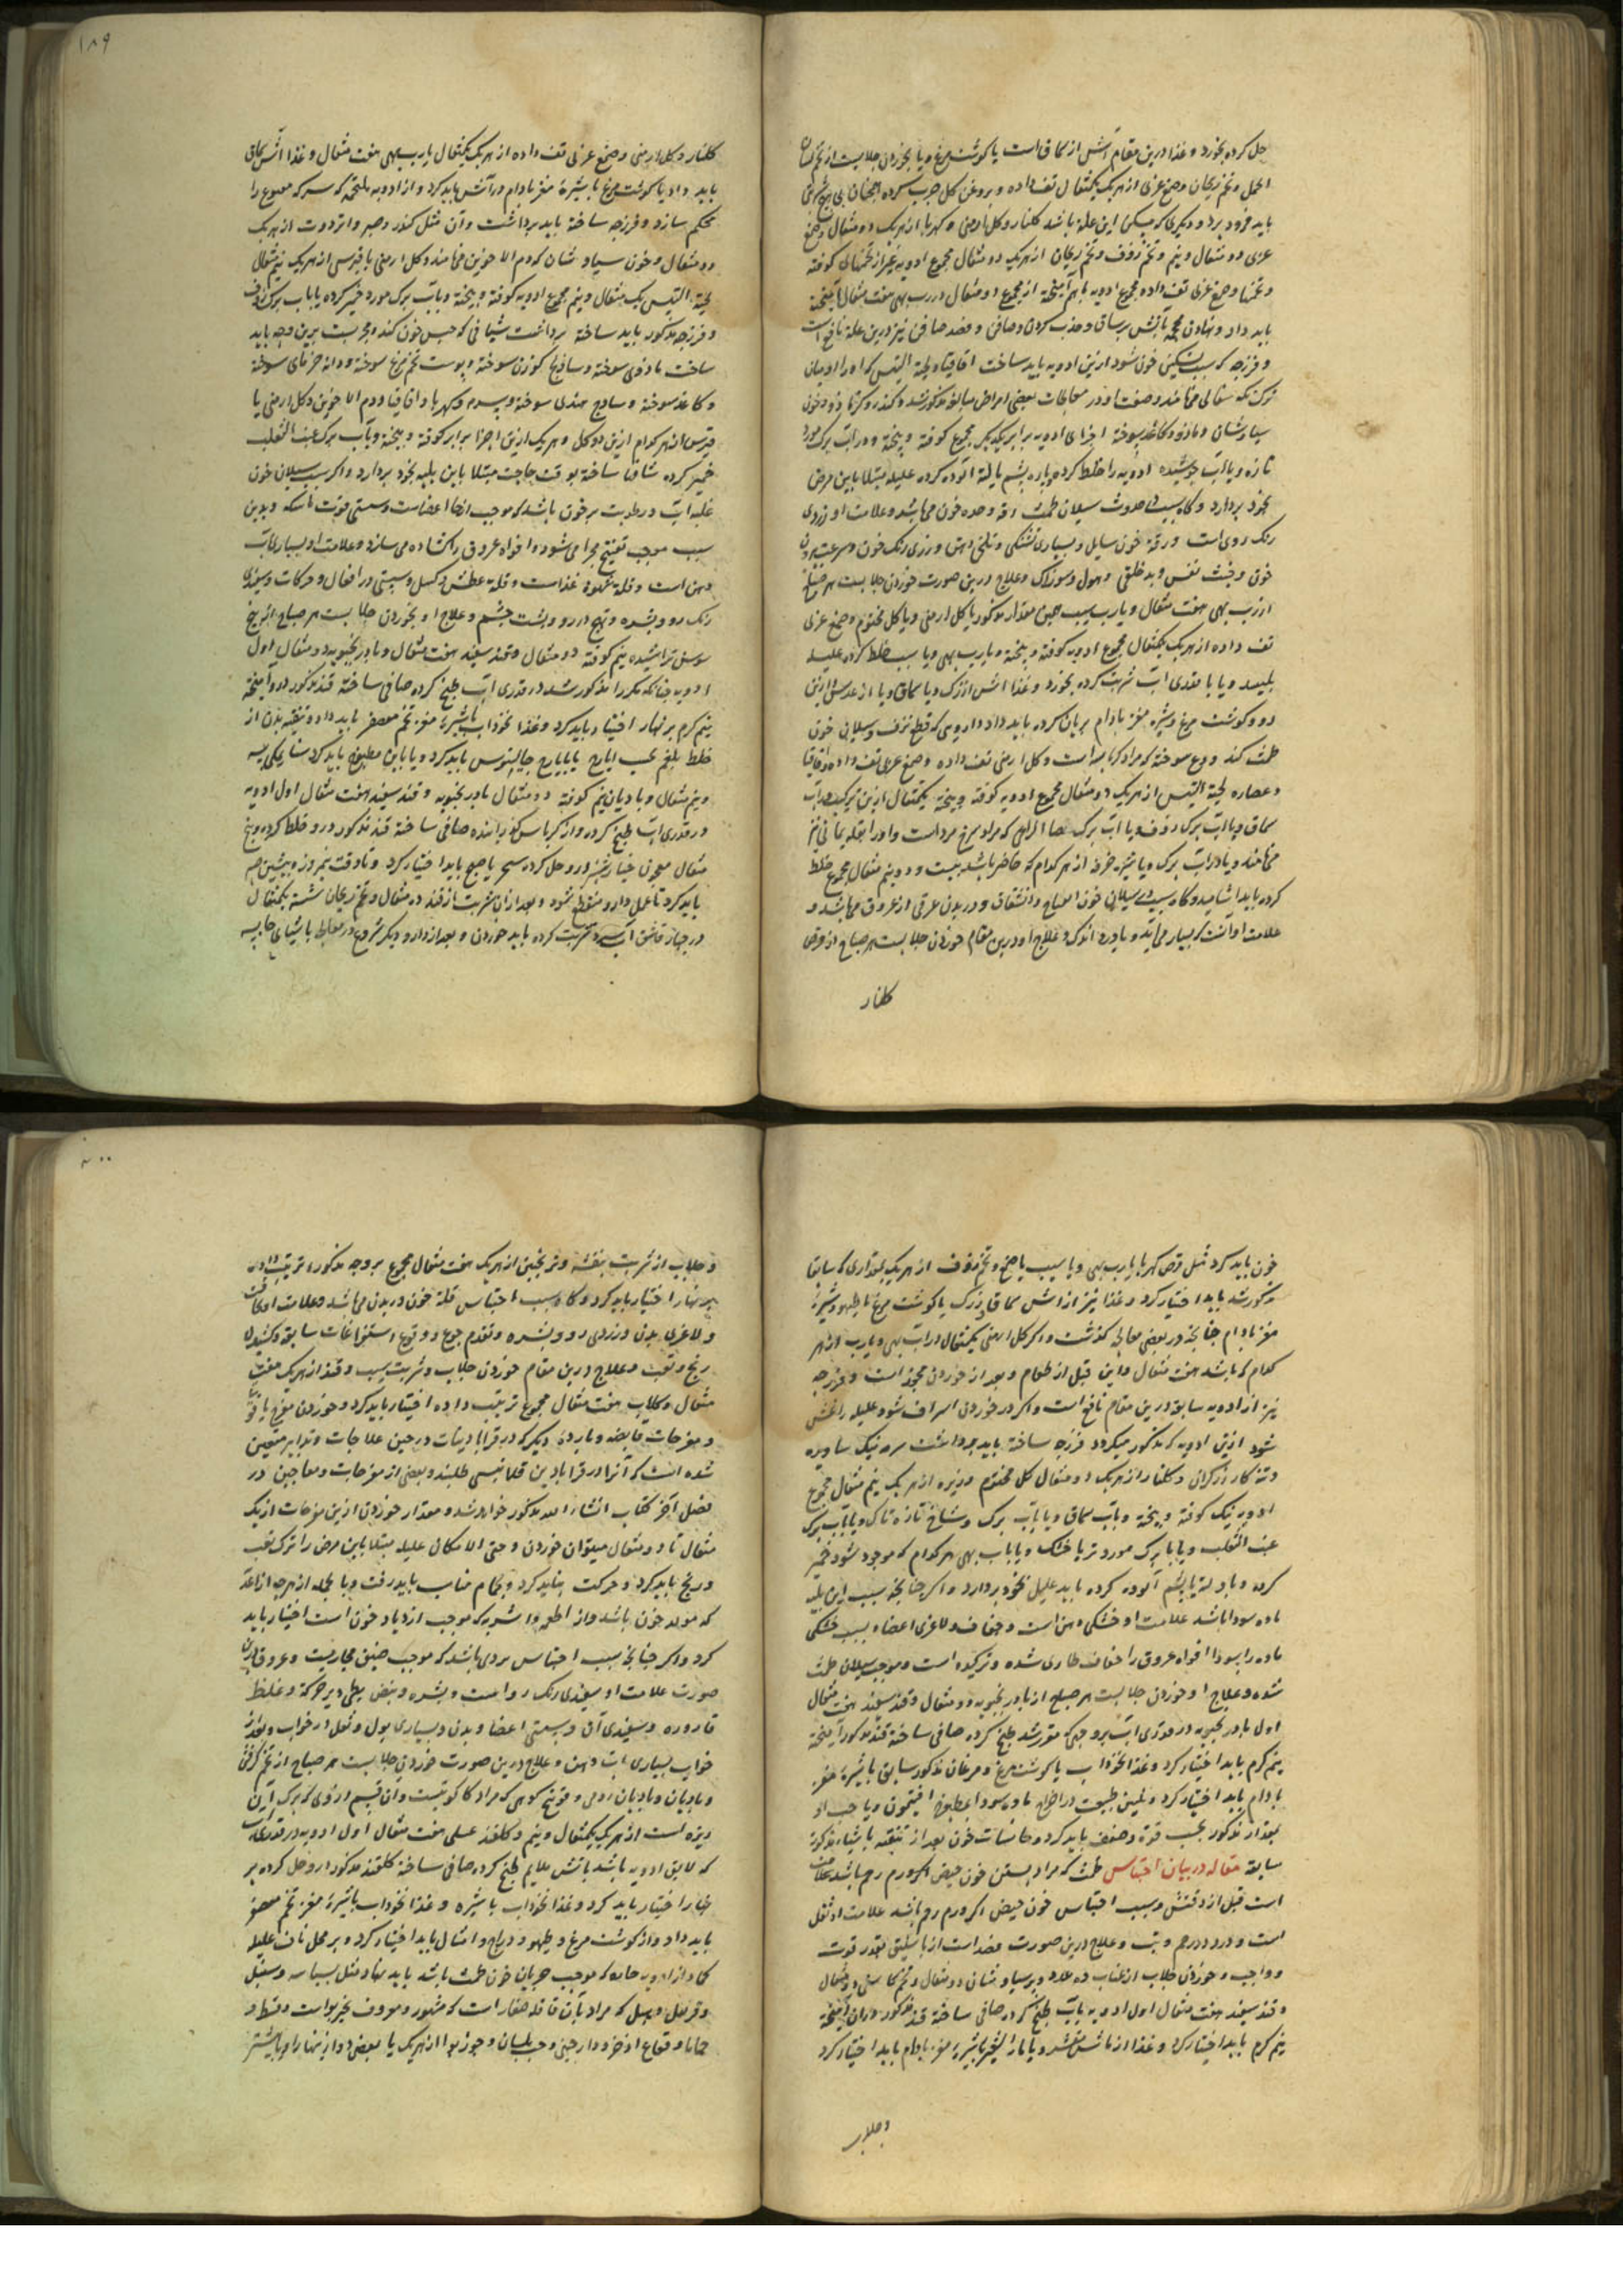 ۱۸۹
حل کرده بخورد و غذا درین مقام آش از سماق است یا کوشت مرغ و یا بخوردن جلابیست از تخم لسان
الحمل و تخم ریحان و صمغ عربی از هر یک یکمثقال تف داده و بروغن کل چرب کرده همچنان بی
باید فرو برد و دیکری که مسکن این علة باشد کلنار و کل ارمنی و کهربا از هر یک دو مثقال و صمغ
عربی دو مثقال و نیم و تخم زفوف و تخم ریحان از هر یک دو مثقال مجموع ادویه غیر از تخمها کوفته
و تخمها و صمغ عربی تف داده مجموع ادویه باهم آمیخته از مجموع دو مثقال در رب بهی هفت مثقال آمیخته
باید داد و نهادن محجمه بآتش بر ساق و جذب کردن و صافن و فصد صافن نیز درین علة نافع است
و فرزجه که سبب تسکین خون شود ازین ادویه باید ساخت اقاقیا و لحیة التیس که او را اودمیان
ترک شنکه سقالی میخوانند و صفت او در معالجات بعضی امراض سابق مذکور شد و کندر و کزمازو و خون
سیاوشان و مازو و کاغذ سوخته اجزای ادویه برابر یکدیکر مجموع کوفته و بیخته و در آب برک مورد
تازه و یا آب جوشیده ادویه را خلط کرده و پاره پشم یا لته آلوده کرده علیله مبتلا باین مرض
بخود بردارد و کاه سبب در حدوث سیلان طمث رقه و حده خون میباشد و علامت او زردی
رنک روی است و رقة خون سایل و بسیاری تشنکی و تلخی دهن و زردی رنک خون و سرعت بیرون
خون و خبث نفس و بدخلقی و هول و سوزناک و علاج درین صورت خوردن جلابیست هر صباح
از رب بهی هفت مثقال و یا رب سیب همین مقدار مذکور با کل ارمنی و یا کل مختوم و صمغ عربی
تف داده از هر یک یکمثقال مجموع ادویه کوفته و بیخته و یا رب بهی و یا سیب خلط کرده علیله
بلیسد و یا با مقداری آب شربت کرده بخورد و غذا آش از زرک و یا سماق و یا از عدس و ازین
دو و کوشت مرغ و شیره مغز بادام بریان کرده باید داد دارویی که قطع نزف و سیلان خون
طمث کند ودع سوخته که مراد کرباسه است و کل ارمنی تف داده و صمغ عربی تف داده و اقاقیا
و عصاره لحیة التیس از هر یک دو مثقال مجموع ادویه کوفته و بیخته یکمثقال ازین ترکیب در آب
سماق و یا آب برک زفوف و یا آب برک عصا الراعی که مراد سرخ مرد است و او را بقله یمانی نیز
میخوانند و یا در آب برک و یا شیره خرفه از هر کدام که حاضر باشد بیست و دو نیم مثقال مجموع خلط
کرده باید آشامید و کاه سبب سیلان خون انفتاح و انشقاق و دریدن عرقی از عروق میباشد و
علامت او آنست که بسیار می‌آید و یا درد اندک و علاج او درین مقام خوردن جلابیست هر صباح از قرص
کلنار
کلنار و کل ارمنی و صمغ عربی تف داده از هر یک یکمثقال یا رب بهی هفت مثقال و غذا آش سماق
باید داد یا کوشت مرغ با شیرهٔ مغز بادام در آتش باید کرد و از ادویه ملتحمه که سر که مقطوع را
محکم سازد و فرزجه ساخته باید برداشت و آن مثل کندر و صبر و انزروت از هر یک
دو مثقال و خون سیاوشان که دم الاخوین میخوانند و کل ارمنی یا قبرسی از هر یک نیم مثقال
لحیة التیس یک مثقال و نیم مجموع ادویه کوفته و بیخته و بآب برک مورد خمیر کرده یا بآب برک زفوف
و فرزجه مذکور باید ساخته برداشت شیافی که حبس خون کند و مجربست برین وجه باید
ساخت مازوی سوخته و ساذج کوزن سوخته و پوست تخم مرغ سوخته و دانه خرمای سوخته
و کاغذ سوخته و ساذج هندی سوخته و بسد و کهربا و اقاقیا و دم الاخوین و کل ارمنی یا
قبرس از هر کدام ازین دو کل و هر یک ازین اجزا برابر کوفته و بیخته و بآب برک عنب الثعلب
خمیر کرده شافها ساخته بوقت حاجت مبتلا باین بلیه بخود بردارد و اکر سبب سیلان خون
غلبه آب و رطوبت بر خون باشد که موجب ارخا اعضاست و سستی قوت ماسکه و بدین
سبب موجب تفتیح مجرا می‌شود و افواه عروق را کشاده می سازد و علامت او بسیاری آب
دهن است و قلة شهوة غذاست و قلة عطش و کسل و سستی در افعال و حرکات و سفیدی
رنک رو و بشره و تهبج در رو و پشت چشم و علاج او بخوردن جلابیست هر صباح از بیخ
سوسن تراشیده نیم کوفته دو مثقال و قند سفید هفت مثقال و بادرنجبویه دو مثقال اول
ادویه چنانکه مکرر مذکور شد در قدری آب طبخ کرده صافی ساخته قند مذکور درو آمیخته
نیم کرم بر نهار اختیار باید کرد و غذا نخوداب با شیرهٔ مغز تخم معصفر باید داد و تنقیه بدن از
خلط بلغم بحب ایارج یا بایارج جالینوس باید کرد و یا باین مطبوخ باید کرد سنا مکی سه
و نیم مثقال و بادیان نیم کوفته دو مثقال بادرنجبویه و قند سفید هفت مثقال اول ادویه
در قدری آب طبخ کرده و از کرباس کذرانیده صافی ساخته قند مذکور درو خلط کرده و پنج
مثقال معجون خیارشنبر درو حل کرده سحر یا صبح باید اختیار کرد و تا وقت نیم روز و پیشین صبر
باید کرد تا عمل دارو منقطع شود و بعد ازان شربت از قند ده مثقال و تخم ریحان شسته یکمثقال
در چهار قاشق آب سرد شربت کرده باید خوردن و بعد از دارو دیکر شروع در معالجه باشیای حابسه
۲۰۰
خون باید کرد مثل قرص کهربا با رب بهی و یا سیب یا صمغ و تخم زفوف از هر یک بمقداری که سابقا
مذکور شد باید اختیار کرد و غذا نیز از آش سماق و زرک یا کوشت مرغ یا طیهو و شیرهٔ
مغز بادام چنانچه در بعضی معالجه کذشت و اکر کل ارمنی یکمثقال در آب بهی و یا رب از هر
کدام که باشد هفت مثقال و این قبل از طعام و بعد از خوردن مجوز است و فرزجه
نیز از ادویه سابق درین مقام نافع است و اکر در خوردن اسراف شود علیله را غش
شود ازین ادویه که مذکور میکردد فرزجه ساخته باید برداشت سرمه نیک ساویده
و تنکار زرکران و کلنار از هر یک دو مثقال کل مختوم و زیره از هر یک نیم مثقال مجموع
ادویه نیک کوفته و بیخته و بآب سماق و یا بآب برک و شاخ تازه تاک و یا بآب برک
عنب الثعلب و یا با برک مورد تر یا خشک و یا بآب بهی هر کدام که موجود شود خمیر
کرده و بلته یا پشم آلوده کرده باید علیل بخود بردارد و اکر چنانچه سبب این بلیه
ماده سودا باشد علامت او خشکی دهن است و جفاف و لاغری اعضاء بسبب خشکی
ماده را بسودا افواه عروق را جفاف طاری شده و ترکیده است و موجب سیلان طمث
شده و علاج او خوردن جلابیست هر صباح از بادرنجبویه دو مثقال و قند سفید هفت مثقال
اول بادرنجبویه در قدری آب بروجهی که مقرر شد طبخ کرده صافی ساخته قند مذکور آمیخته
نیم کرم باید اختیار کرد و غذا نخوداب یا کوشت مرغ و مرغان مذکور سابق با شیرهٔ مغز
بادام باید اختیار کرد و تلیین طبیعت در اخراج ماده سودا بمطبوخ افتیمون و یا حب او
بمقدار مذکور بحسب قوة و ضعف باید کرد و حابسات خون بعد از تنقیه باشیاء مذکوره
سابقه مقاله در بیان احتباس طمث که مراد بستن خون حیض اکر ورم رحم باشد علامت
است قبل از وقتش و سبب احتباس خون حیض اکر ورم رحم باشد علامت او ثقل
است و درد در رحم و تب و علاج درین صورت فصد است از باسلیق بقدر قوت
و واجب و خوردن جلاب از عناب ده عدد و پرسیاوشان دو مثقال و تخم کاسنی دو مثقال
و قند سفید هفت مثقال اول ادویه بآب طبخ کرده صافی ساخته قند مذکور دران آمیخته
نیم کرم باید اختیار کرد و غذا از ماش مقشر و یا ماء الشعیر با شیرهٔ مغز بادام باید اختیار کرد
و جلاب
و جلاب از شربت بنفشه و ترنجبین از هر یک هفت مثقال مجموع بروجه مذکور ترتیب داده
بر نهار اختیار باید کرد و کاه سبب احتباس قلة خون در بدن میباشد و علامت او نحافت
و لاغری بدن و زردی رو و بشره و تقدم جوع و وقوع استفراغات سابقه و کشیدن
رنج و تعب و علاج درین مقام خوردن جلاب و شربت سیب و قند از هر یک هفت
مثقال و کلاب هفت مثقال مجموع ترتیب داده اختیار باید کرد و خوردن مفرح یاقوتی
و مفرحات قابضه و بارده دیکر که در قرابادینات در حین علاجات و تدابیر متعین
شده است که آنرا در قرابادین قلانسی طلبند و بعضی از مفرحات و معاجین در
فصل آخر کتاب انشاء الله مذکور خواهد شد و مقدار خوردن ازین مفرحات از یک
مثقال تا دو مثقال میتوان خوردن و حتی الامکان علیله مبتلا باین مرض را ترک تعب
و رنج باید کرد و حرکت نباید کرد و بحمام مناسب باید رفت و بالجمله از هرچه از اغذیه
که مولد خون باشد و از اطعمه و اشربه که موجب ازدیاد خون است اختیار باید
کرد و اکر چنانچه سبب احتباس سردی باشد که موجب ضیق مجاریست و عروق درین
صورت علامت او سفیدی رنک رو است و بشره و نبض بطی دیر حرکة و غلظ
قاروره و سفیدی آن و سستی اعضا و بدن و بسیاری بول و ثقل در خواب و بعد از
خواب بسیاری آب دهن و علاج درین صورت خوردن جلابیست هر صباح از تخم کرفس
و بادیان و بادیان رومی و فوتنج کوهی که مراد کاکوتیست و ان قسم اردوی که برک آن
ریزه است از هر یک یکمثقال و نیم و کلقند عسلی هفت مثقال اول ادویه در قدری آب
که لایق ادویه باشد بآتش ملایم طبخ کرده صافی ساخته کلقند مذکور درو حل کرده بر
نهار اختیار باید کرد و غذا نخوداب با شیره و غذا نخوداب با شیرهٔ مغز تخم معصفر
باید داد و از کوشت مرغ و طیهو و دراج و امثال باید اختیار کرد و بر محل ناف علیله
کماد از ادویه حاره که موجب جریان خون طمث باشد باید نهاد مثل بسباسه و سنبل
و قرنفل و هیل که مراد بآن قاقله صغار است که مشهور و معروف بخیربواست و قسط و
حماما و فقاع اذخر و دارچینی و حب بلسان و جوزبوا از هر یک یا بعضی دو از تنها را و یا بیشتر